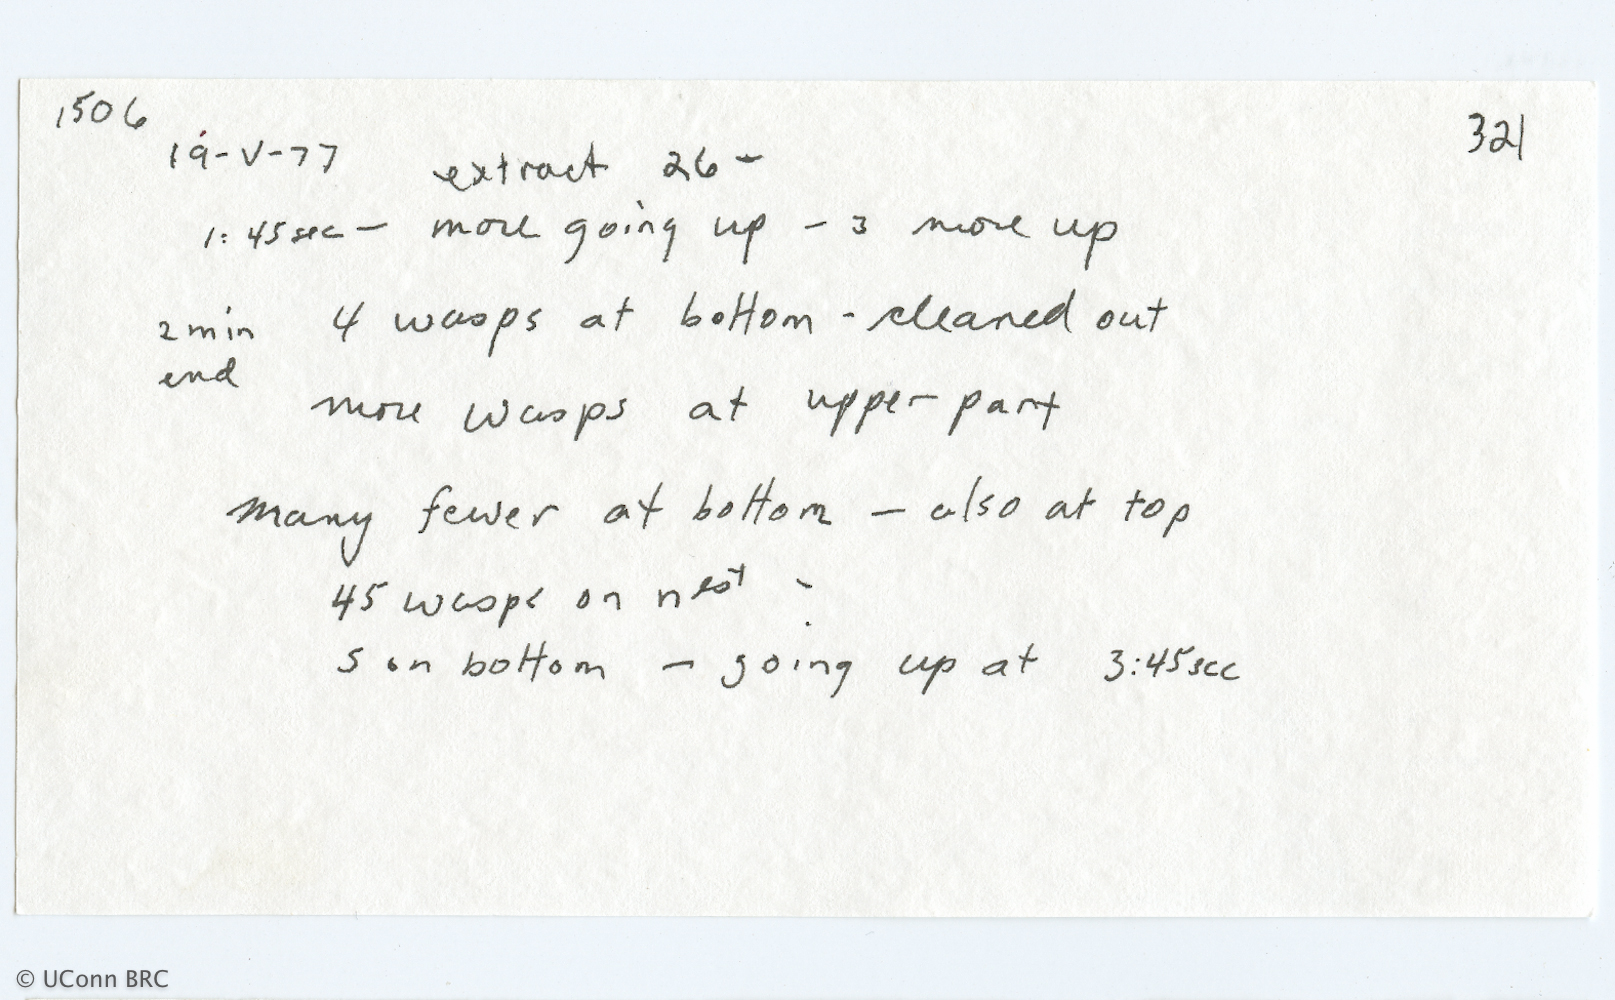 1506
321
19-V-77 extract 26 -
1:45sec - more going up - 3 more up
2 min 4 wasps at bottom - cleaned out
end
more wasps at upper part
many fewer at bottom - also at top
45 wasps on nest -
5 on bottom - going up at 3:45sec
© UConn BRC